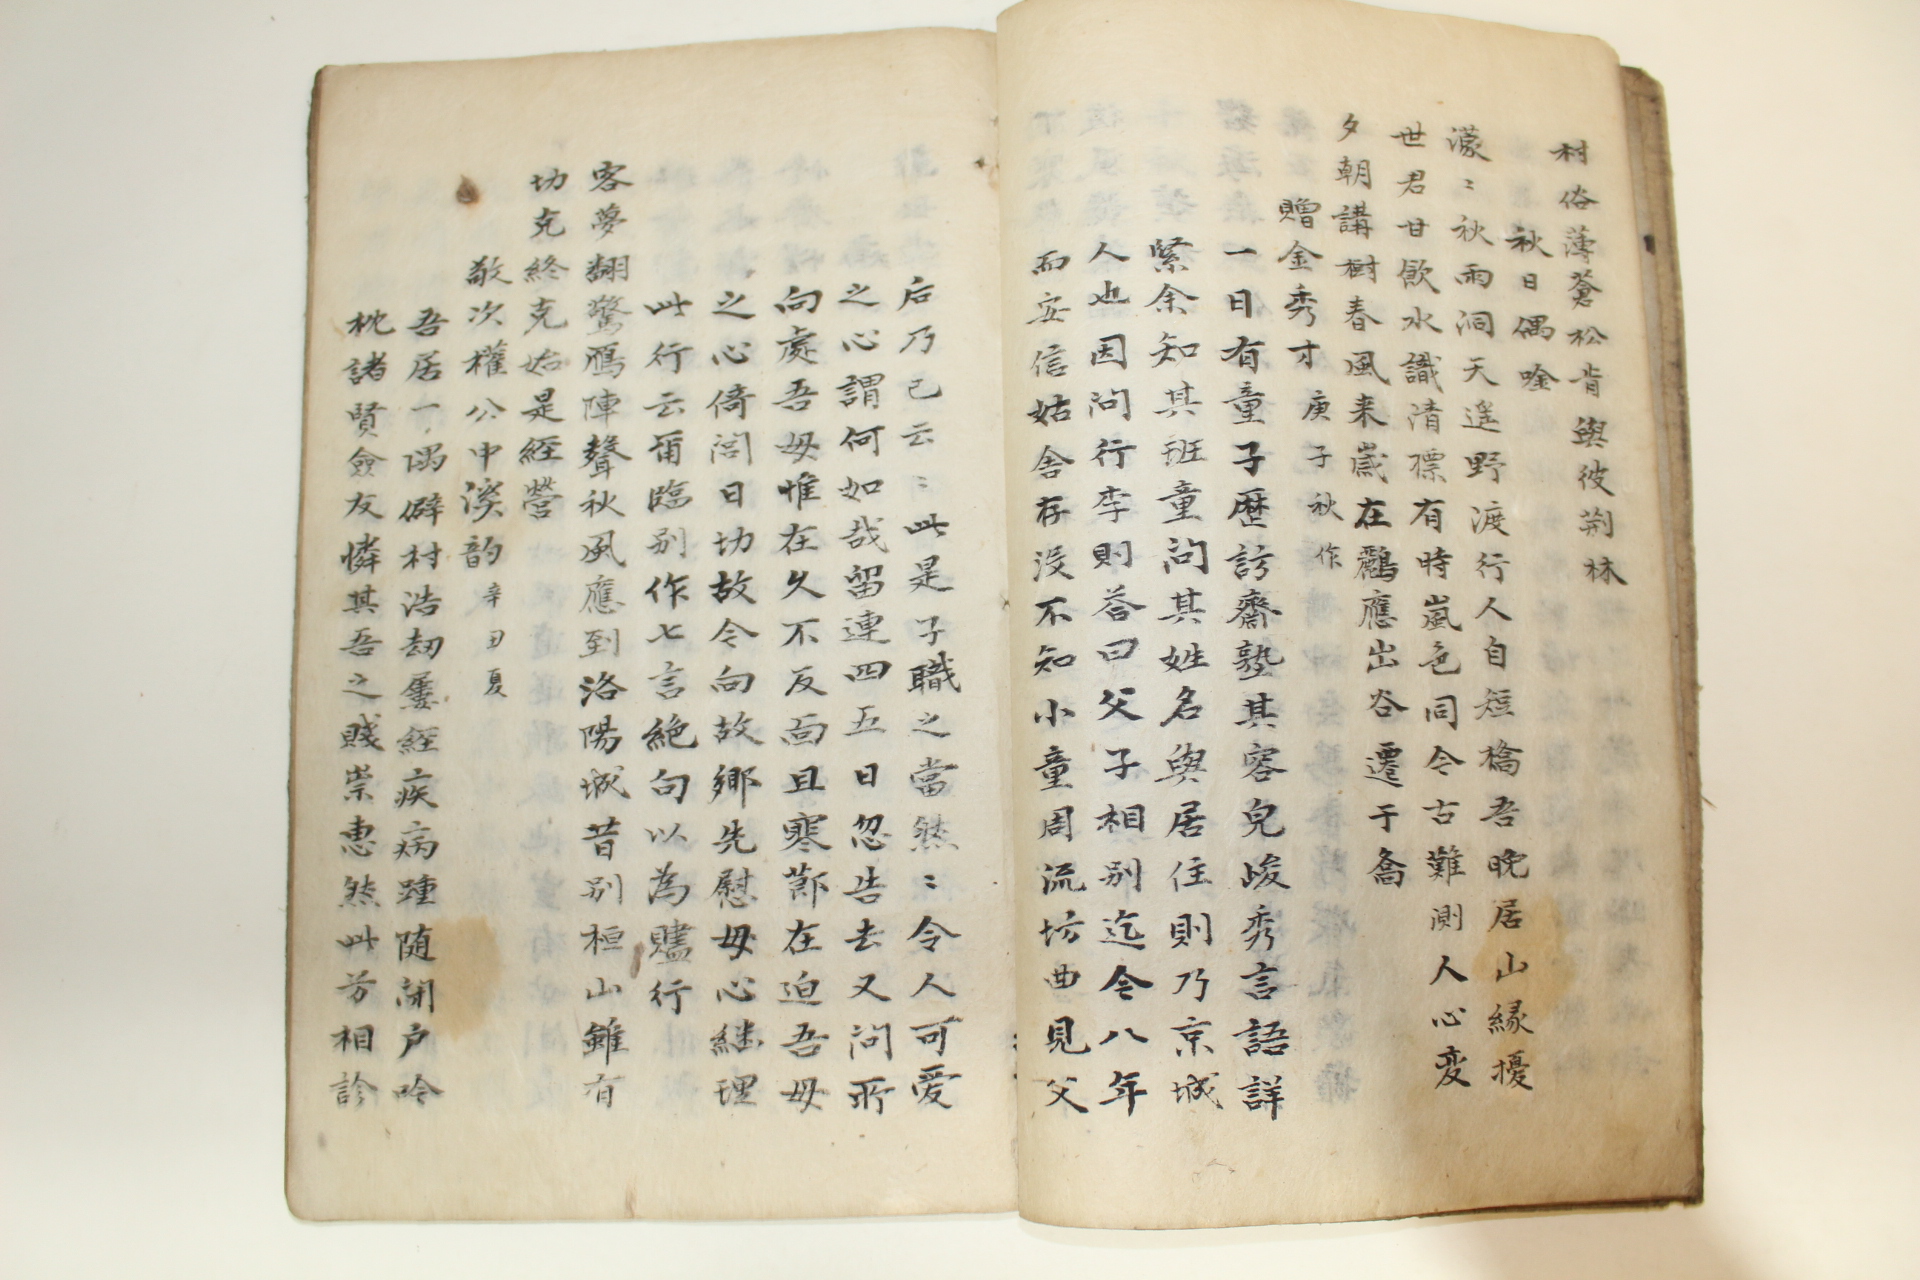 村俗薄蒼松肯與彼荊林
秋日偶唫
濛〻秋雨洞天遥野渡行人自短橋吾晚居山緣擾
世君甘飮水識清標有時嵐色同今古難測人心変
夕朝講樹春風来歲在鸝應出谷遷于喬
贈金秀才 庚子秋作
一日有童子歷訪齋塾其容皃峻秀言語詳
緊余知其班童問其姓名與居住則乃京城
人也因问行李則答曰父子相別迄今八年
而安信姑舍存沒不知小童周流坊曲見父
后乃已云〻此是子職之當然〻令人可爱
之心謂何如哉留連四五日忽告去又问所
向處吾母惟在久不反面且寒節在迫吾母
之心倚閭日切故今向故鄉先慰母心継理
此行云甭臨别作七言絶句以為贐行
客夢翻驚鴈陣聲秋風應到洛陽城昔别桓山雖有
切克終克始是經營
敬次權公中溪韵 辛丑夏
吾居一隅僻村浩劫屢經疾病踵随閉户吟
枕諸賢僉友憐其吾之賤祟恵然此芳相診